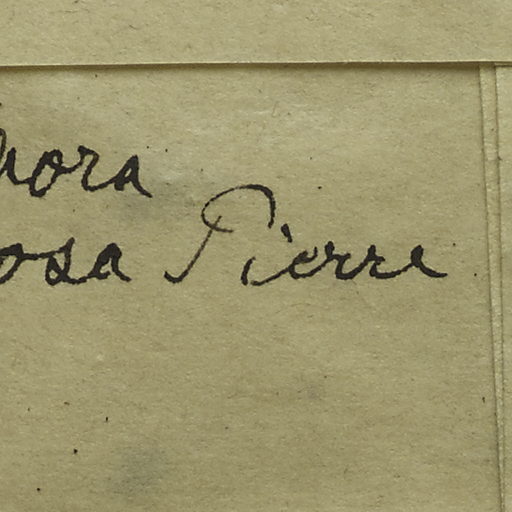 hora
osa Pierre